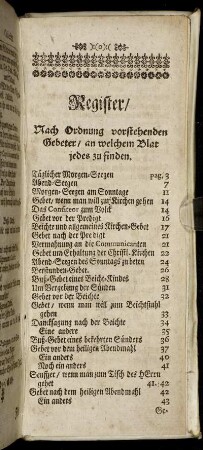 Register/
Nach Ordnung vorstehenden
Gebeter/ an welchem Blat
jedes zu finden.
Täglicher Morgen-Seegen pag. 3
Abend-Seegen 7
Morgen-Seegen am Sonntage 11
Gebet/ wenn man will zur Kirchen gehen 14
Das Confiteor zum Volck 14
Gebet vor der Predigt 16
Beichte und allgemeines Kirchen-Gebet 17
Gebet nach der Predigt 21
Vermahnung an die Communicanten 21
Gebet um Erhaltung der Christl. Kirchen 22
Abend-Seegen des Sonntags zu beten 24
Gebet. 26
Buß-Gebet eines Beicht-Kindes 28
Um Vergebung der Sünden 31
Gebet vor der Beichte 32
Gebet/ wenn man will zum Beichtstuhl
gehen 33
Dancksagung nach der Beichte 34
Eine andere 35
Buß-Gebet eines bekehrten Sünders 36
Gebet vor dem heiligen Abendmahl 37
Ein anders 40
Noch ein anders 41
Seuffzer/ wenn man zum Tisch des HErrn
gehet 41. 42
Gebet nach dem heiligen Abendmahl 42
Ein anders 43
Ge-